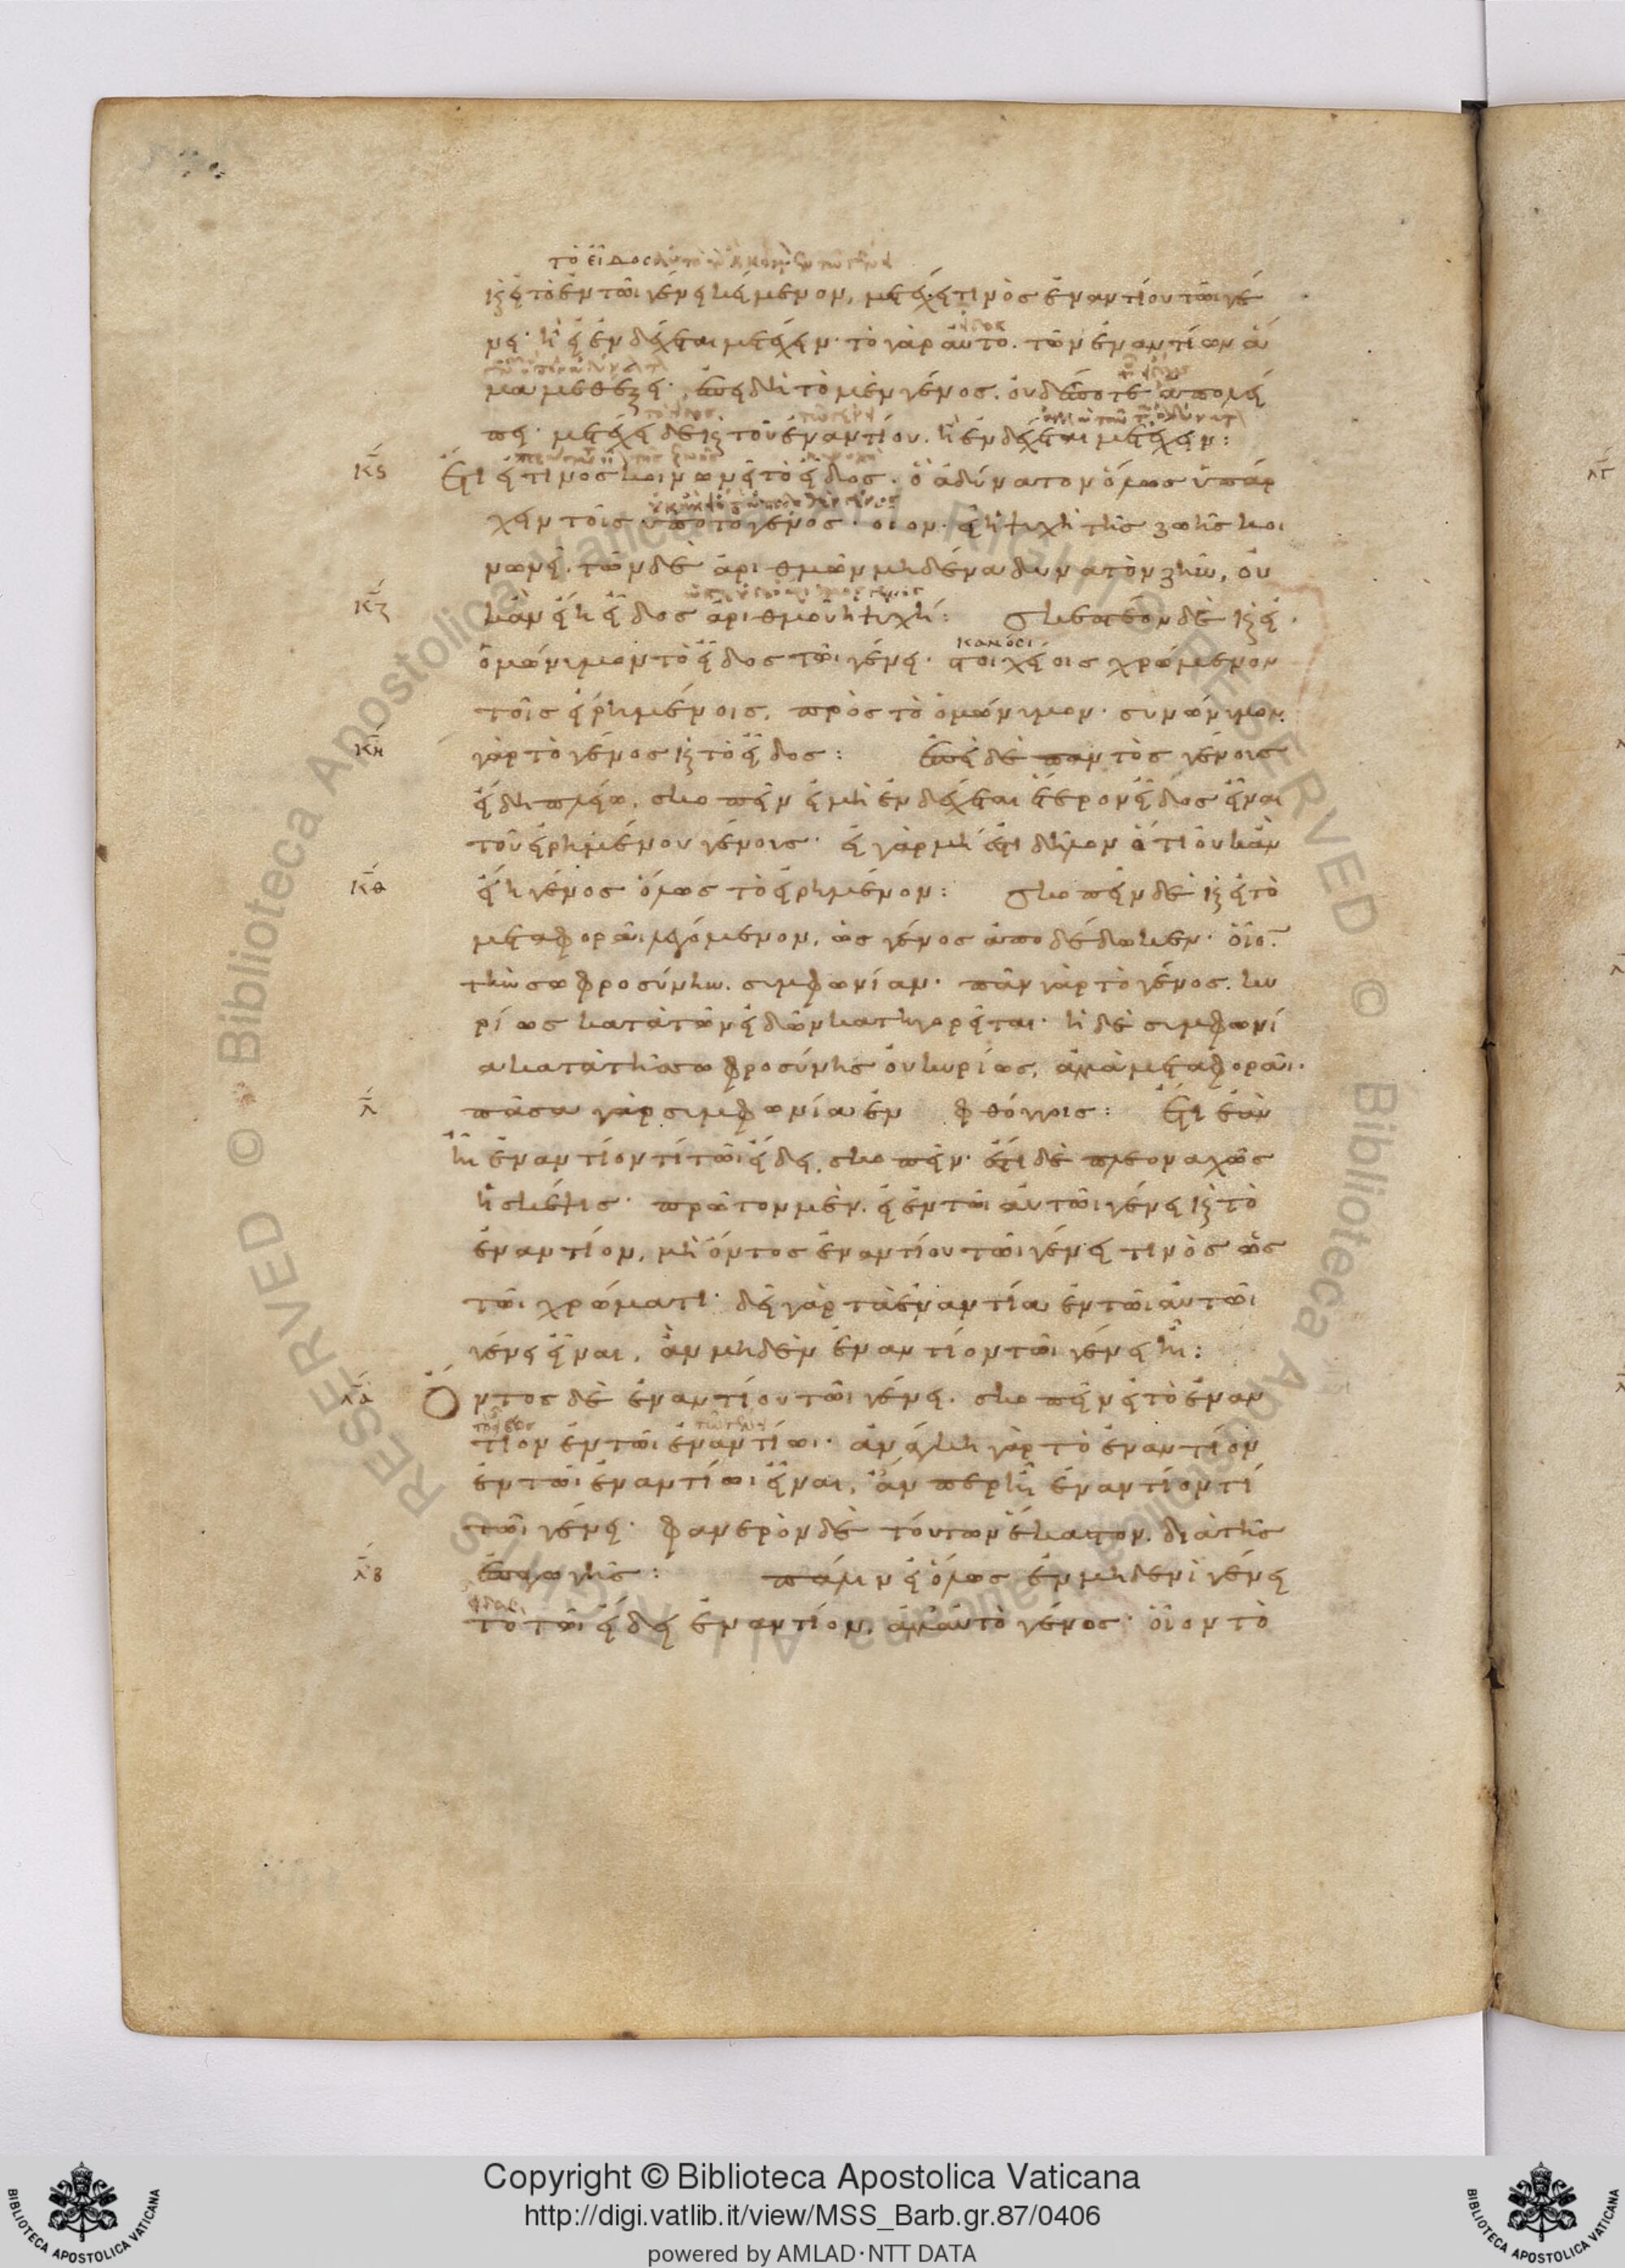 τὸ εἶδος
καὶ εἰ τὸ ἐν τῶι γένει κείμενον, μετέχει τινὸς ἐναντίου τῶι γέ
νει· ἢ εἰ ἐνδέχεται μετέχειν· τὸ γὰρ αὐτὸ. τῶν ἐναντίων ἅ
μα μεθέξει· ἐπειδὴ τὸ μὲν γένος. οὐδέποτε ἀπολεί
πει· μετέχει δε καὶ τοῦ ἐναντίου. ἢ ἐνδέχεται μετέχειν:
κϛ Ἔτι εἴ τινος κοινωνεῖ τὸ εἶδος. ὃ ἀδύνατον ὅλως ὑπάρ
χειν τοῖς ὑπο τὸ γένος· οιον. εἰ ἡ ψυχὴ τῆς ζωῆς κοι
νωνεῖ. τῶν δὲ ἀριθμῶν μηδένα δυνατὸν ζῆν, οὐ
κζ κὰν εἴη εἶδος ἀριθμοῦ ἡ ψυχή: σκεπτέον δὲ καὶ εἰ
ὁμώνυμον τὸ εἶδος τῶι γένει. στοιχείοις χρώμενον
κανόσι
τοῖς εἰρημένοις, πρὸς τὸ ὁμώνυμον· συνώνυμον
κη γὰρ τὸ γένος καὶ τὸ εἶδος: ἐπεὶ δὲ παντὸς γένους
εἴδη πλείω. σκοπεῖν εἰ μὴ ἐνδέχεται ἕτερον εἶδος εἶναι
τοῦ εἰρημένου γένους· εἰ γὰρ μή ἐστι δῆλον ὅτι οὐκ ἂν
κθ εἴη γένος ὅλως τὸ εἰρημένον: σκοπεῖν δὲ καὶ εἰ τὸ
μεταφορᾶι λεγόμενον, ὡς γένος ἀποδέδωκεν. οἷο
τὴν σωφροσύνην. συμφωνίαν· πᾶν γὰρ τὸ γένος. κυ
ρίως κατὰ τῶν εἰδῶν κατηγορεῖται· ἡ δὲ συμφωνί
α κατὰ τῆς σωφροσύνης οὐ κυρίως, ἀλλὰ μεταφορᾶι·
λ πᾶσα γὰρ συμφωνία ἐν φθόγγοις: Ἔτι ἐὰν
ἦι ἐναντίον τί τῶι εἴδει, σκοπεῖν. ἔστι δὲ πλεοναχῶς
ἡ σκέψις· πρῶτον μὲν. εἰ ἐν τῶι αὐτῶι γένει καὶ τὸ
ἐναντίον, μὴ ὄντος ἐναντίου τῶι γένει τινὸς ὡς
τῶι χρώματι· δεῖ γὰρ τὰ ἐναντία ἐν τῶι αὐτῶι
γένει εἶναι, ἂν μηδὲν ἐναντίον τῶι γένει ἦι:
λα Ὄντος δὲ ἐναντίου τῶι γένει. σκοπεῖν εἰ τὸ ἐναν
τίον ἐν τῶι ἐναντίωι· ἀνάγκη γὰρ τὸ ἐναντίον
ἐν τῶι ἐναντίωι εἶναι, ἄν περ ἦι ἐναντίον τί
τῶι γένει· φανερὸν δὲ τούτων ἕκαστον. διὰ τῆς
λβ ἐπαγωγῆς: πάλιν εἰ ὅλως ἐν μηδενὶ γένει
τὸ τῶι εἴδει ἐναντίον, ἀλλ' αὐτὸ γένος· οἷον τὸ
© Biblioteca Apostolica Vaticana ALL RIGHTS RESERVED © Biblioteca Apostolica Vaticana ALL RIGHTS RESERVED
Copyright © Biblioteca Apostolica Vaticana
http://digi.vatlib.it/view/MSS_Barb.gr.87/0406
powered by AMLAD·NTT DATA
BIBLIOTECA APOSTOLICA VATICANA
BIBLIOTECA APOSTOLICA VATICANA